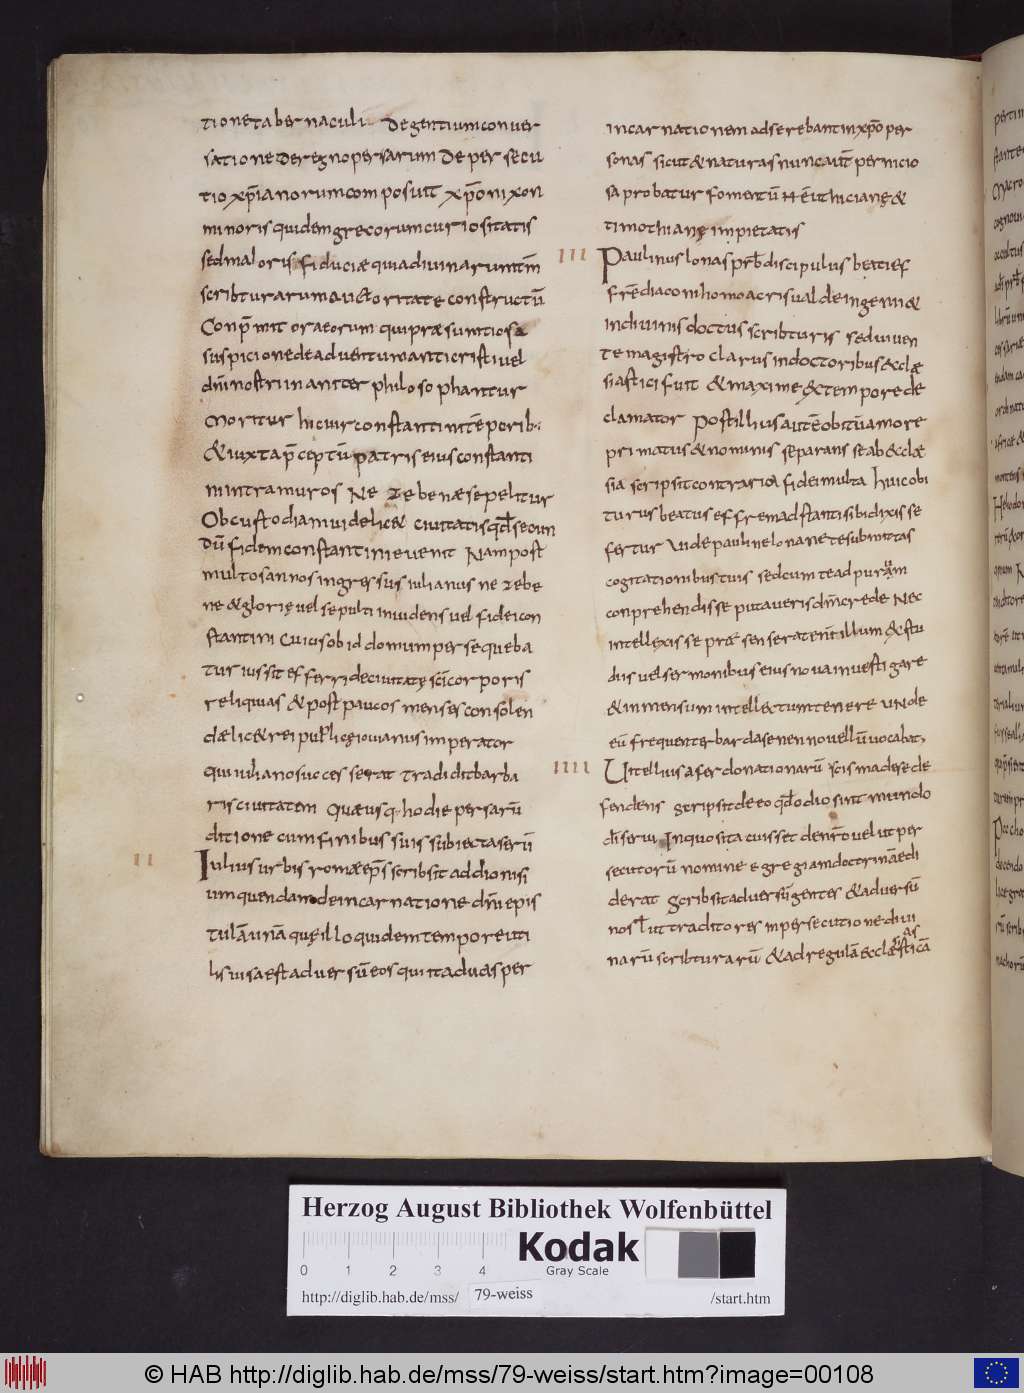 tionetabernaculi. degentiumconuer
satione deregnopersarum de persecu
tio xp̄ianorum composuit xp̄o nixon
minoris quidem grecorum curiositatis
sed maioris fiduciæ quia diuinarum tm̄
scribturarum auctoritate constructū
Conp̄mit oratorum qui præsumtiosa
suspicione de aduentum anticristi uel
dn̄i nostri inaniter philosophantur
Moritur hic uir constantini tēporib:
& iuxta p̄ceptū patris eius constanti
ni intra muros Nezebenæ sepelitur
Ob custodiam uidelic& ciuitatis qđ secun
dū fidem constantini euenit Nam post
multos annos ingressus iulianus nezebe
ne & glorię uel sepulti inuidens uel fidei con
stantini cuius ob id domum persequeba
tur iussit efferri de ciuitatę sc̄i corporis
reliquias & post paucos menses consolen
dæ lic& reipuƀlicę iouianus imperator
qui iuliano successerat tradidit barba
ris ciuitatem Quæ usq· hodie persarū
ditione cum finibus suis subiecta serū
II
Iulius urbis romæ ep̄s scribsit ad dionisi
um quendam de incarnatione dn̄i epis
tulā unā quę illo quidem tempore uti
lis uisa est aduersū eos qui ita duas per
incarnationem adserebant in xp̄o per
sonas sicut & naturas nunc aut̄ pernicio
sa probatur fomentū H ē euthicianę &
timothianę impietatis
III
Paulinus lonas pr̄b discipulus beati ef
frēdiaconi homo acris ualde ingenii &
in diuinis doctus scribturis sed uiuen
te magistro clarus in doctoribus &cclæ
siastici fuit & maxime &tempore de
clamator Post illius autē obitū amore
primatus & nominis separans se ab &cclæ
sia scripsit contraria fidei multa huic obi
turus beatus effrem adstanti sibi dixisse
fertur Uide pauline lonane te submittas
cogitationibus tuis sed cum te ad purum
conprehendisse putaueris dm̄ crede Nec
intellexisse præsenserat en̄ illum & stu
diis uel sermonibus eius noua inuestigare
& inmensum intell&tum tenere unde
eū frequenter bardasenen nouellū uocabat,
IIII
Uitellius afer donationarū scismadese de
fendens scripsit de eo qđ odio sint mundo
dī serui In quo si tacuisset de nr̄o uelut per
secutorū nomine egregiam doctrinā edi
derat Scribsit aduersū gentes & aduersū
nos l̄ ut traditores in persecutione diui
narū scribturarū & ad regulā &cclæsticā